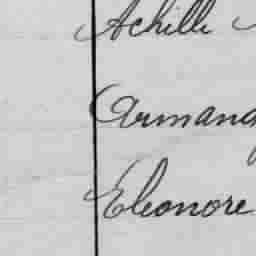 Achille
Armand
Eleonore